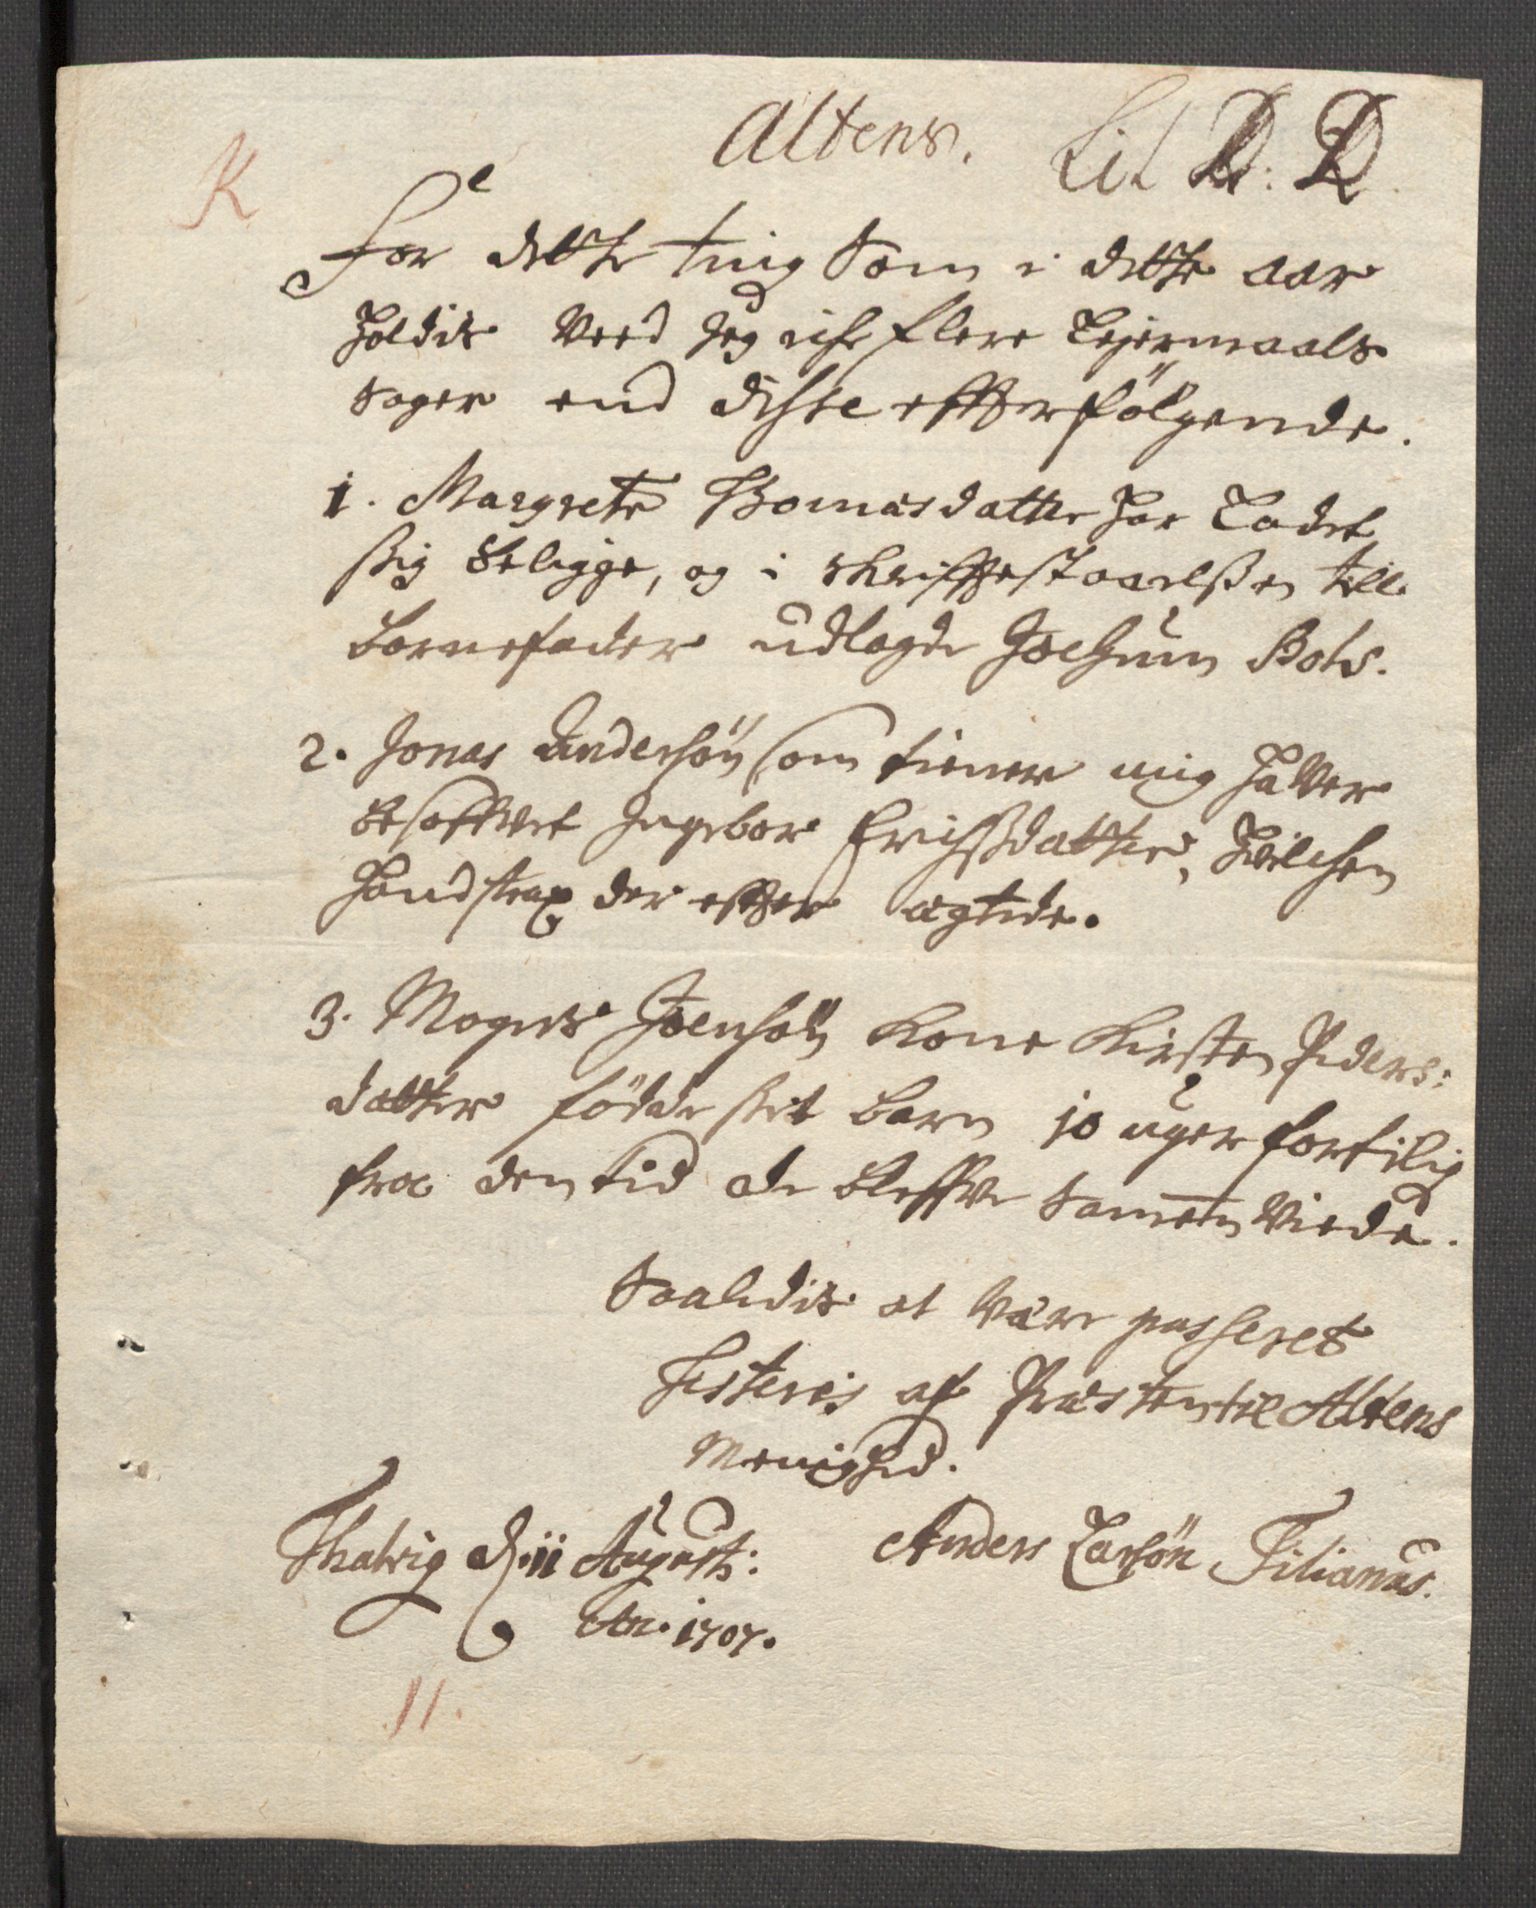 Altens. Lit D: D.
K
For dette ting som i dette aar
holdis veed jeg iche flere Lejermaals
sager end disse effterfölgende.
1. Margrete Thomasdatter har Ladet
sig beligge, og i skrifftestoarlsen till
barnefader udlagde Jochum Bols.
2. Jonas Andersön som tiener mig haver
besoffvet Ingebor Erichsdatter, hvilchen
hand strax der effter ægtede.
3. Mogens Joensön kone Kirsten Peders:
datter födde sit barn 10 uger fortilig
fra den tid de bleffve sammen viede.
Saaledis at være passeret
testeris af Præsten til Altens
Menighed.
Thalvig d. 11 Augusti:
Anders Larsön Filianus.
An. 1707.
11.